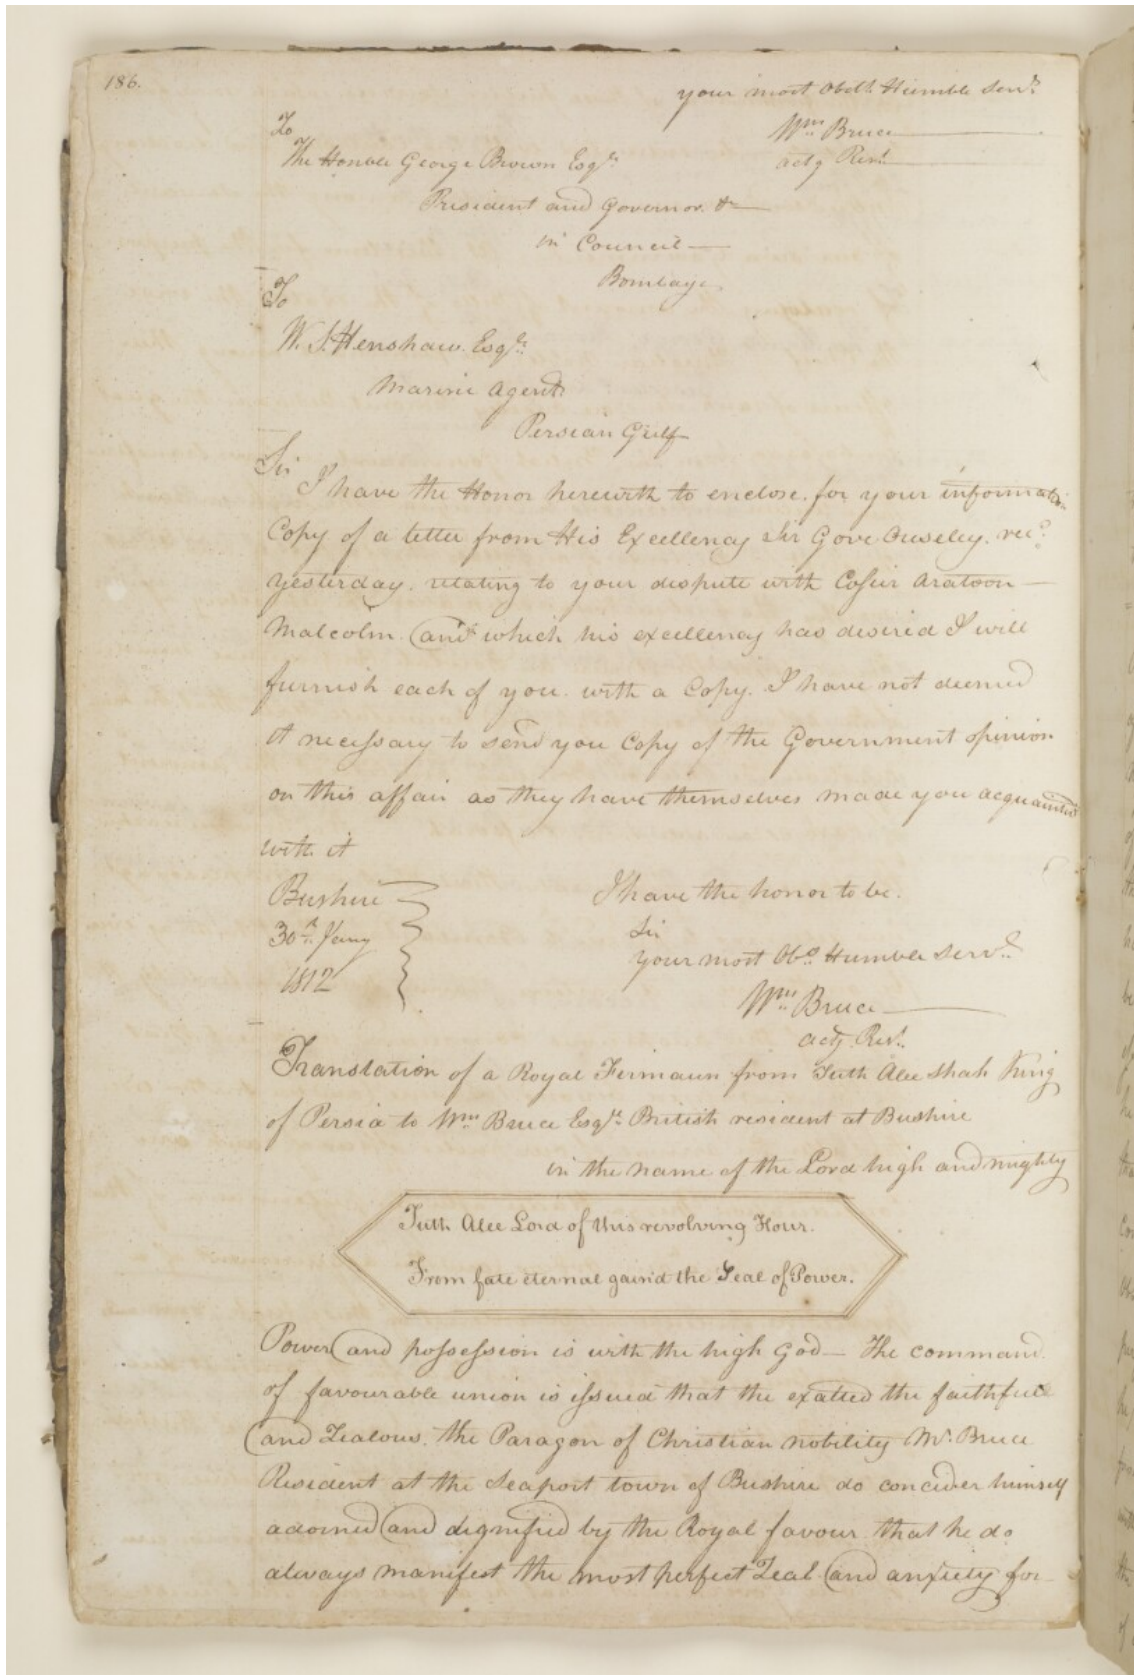 186.
your most Obdt. Humble Servt.
Wm Bruce
actg Rest.
To
The Honble George Brown Esqr.
President and Governor. &c
in Council
Bombay
To
W. J. Henshaw. Esqr.
Marine Agent
Persian Gulf
Sir
I have the Honor herewith to enclose. for your information
Copy of a letter from His Excellency Sir Gore Ouseley. recd.
yesterday. relating to your dispute with Aratoon
Malcolm. and which his excellency has desired I will
furnish each of you. with a Copy. I have not deemed
it necessary to send you Copy of the Government opinion
on this affair as they have themselves made you acquainted
with it
Bushire
30th Jany
1812
I have the honor to be.
Sir
your most Obd. Humble Servt.
Wm Bruce
actg Rest.
Translation of a Royal Firmaun from Futh Alee Shah King
of Persia to Wm Bruce Esqr. British resident at Bushire
in the name of the Lord high and mighty
Futh Alee Lord of this revolving Hour.
From fate eternal gain'd the Seal of Power.
Power and possession is with the high God — The command
of favourable union is issued that the exalted the faithfull
and Zealous. the Paragon of Christian nobility Mr. Bruce
Resident at the Seaport town of Bushire do concider himself
adorned and dignified by the Royal favour that he do
always manifest the most perfect Zeal and anxiety for